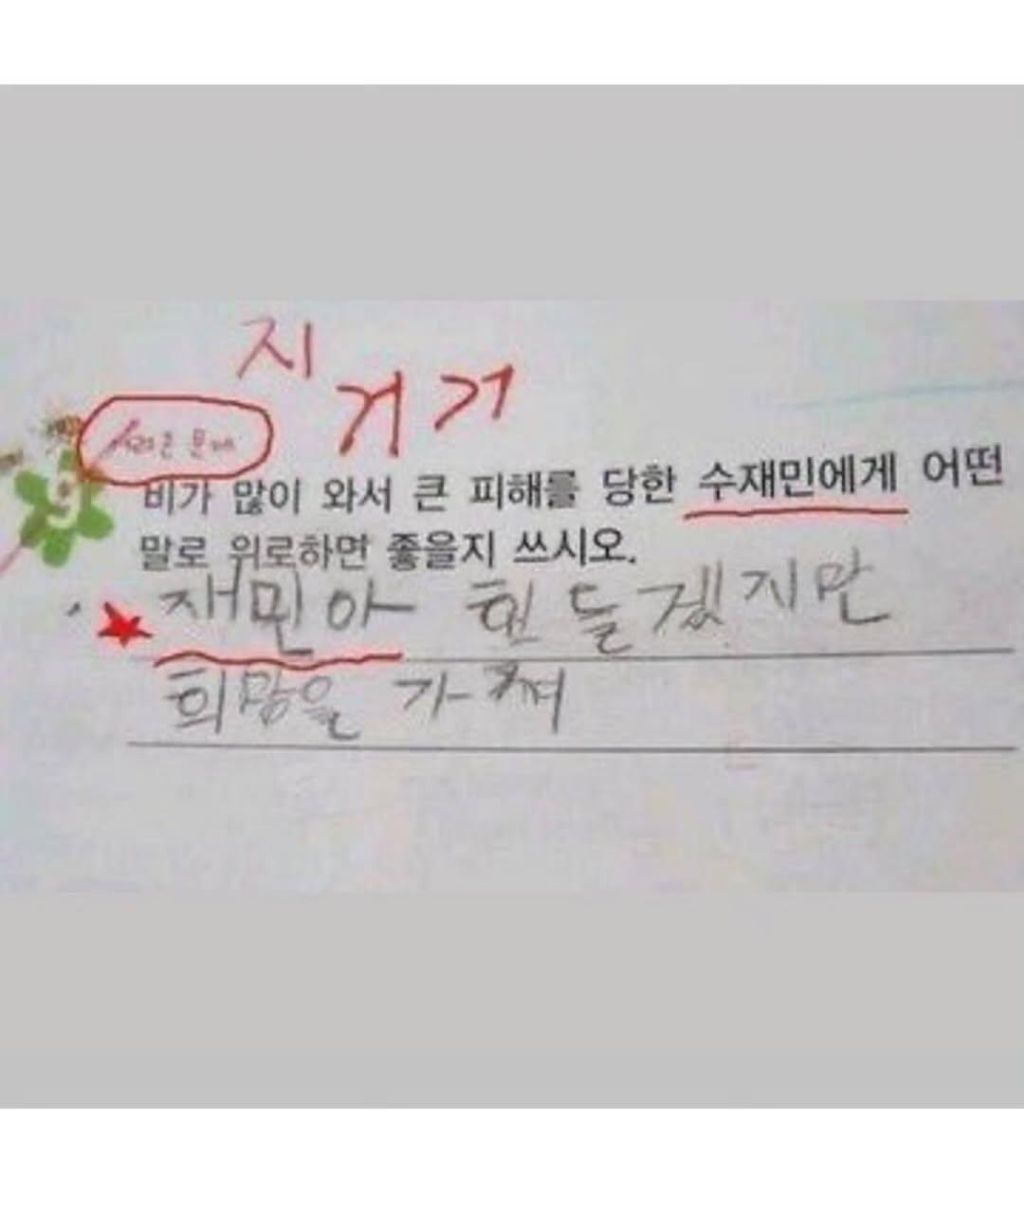 지
거 거
비가 많이 와서 큰 피해를 당한 수재민에게 어떤
말로 위로하면 좋을지 쓰시오.
재민아 힌들겠지만
희망을 가져